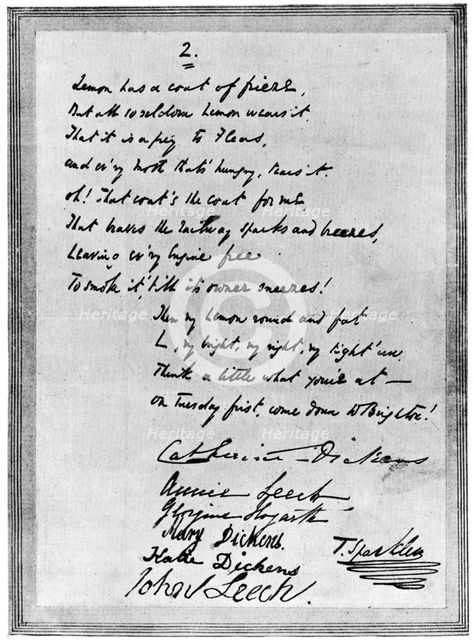 2.
Lemon has a coat of frieze,
But all so seldom Lemon wears it
That it is a prey to Fleas,
and ev'ry moth that's hungry, tears it.
oh! that coat's the coat for me
That braves the railway sparks and breezes,
Leaving ev'ry Engine free
To smoke it till its owner sneezes!
Then my Lemon round and fat
L, my bright, my right, my tight 'un
Think a little what you're at —
on Tuesday first, come down to Brighton!
Catherine Dickens
Annie Leech
Georgina Hogarth
Mary Dickens.
T. Sparkler
Katie Dickens
John Leech.
Heritage
Heritage
Heritage
Heritage
Heritage
Heritage
Heritage
C